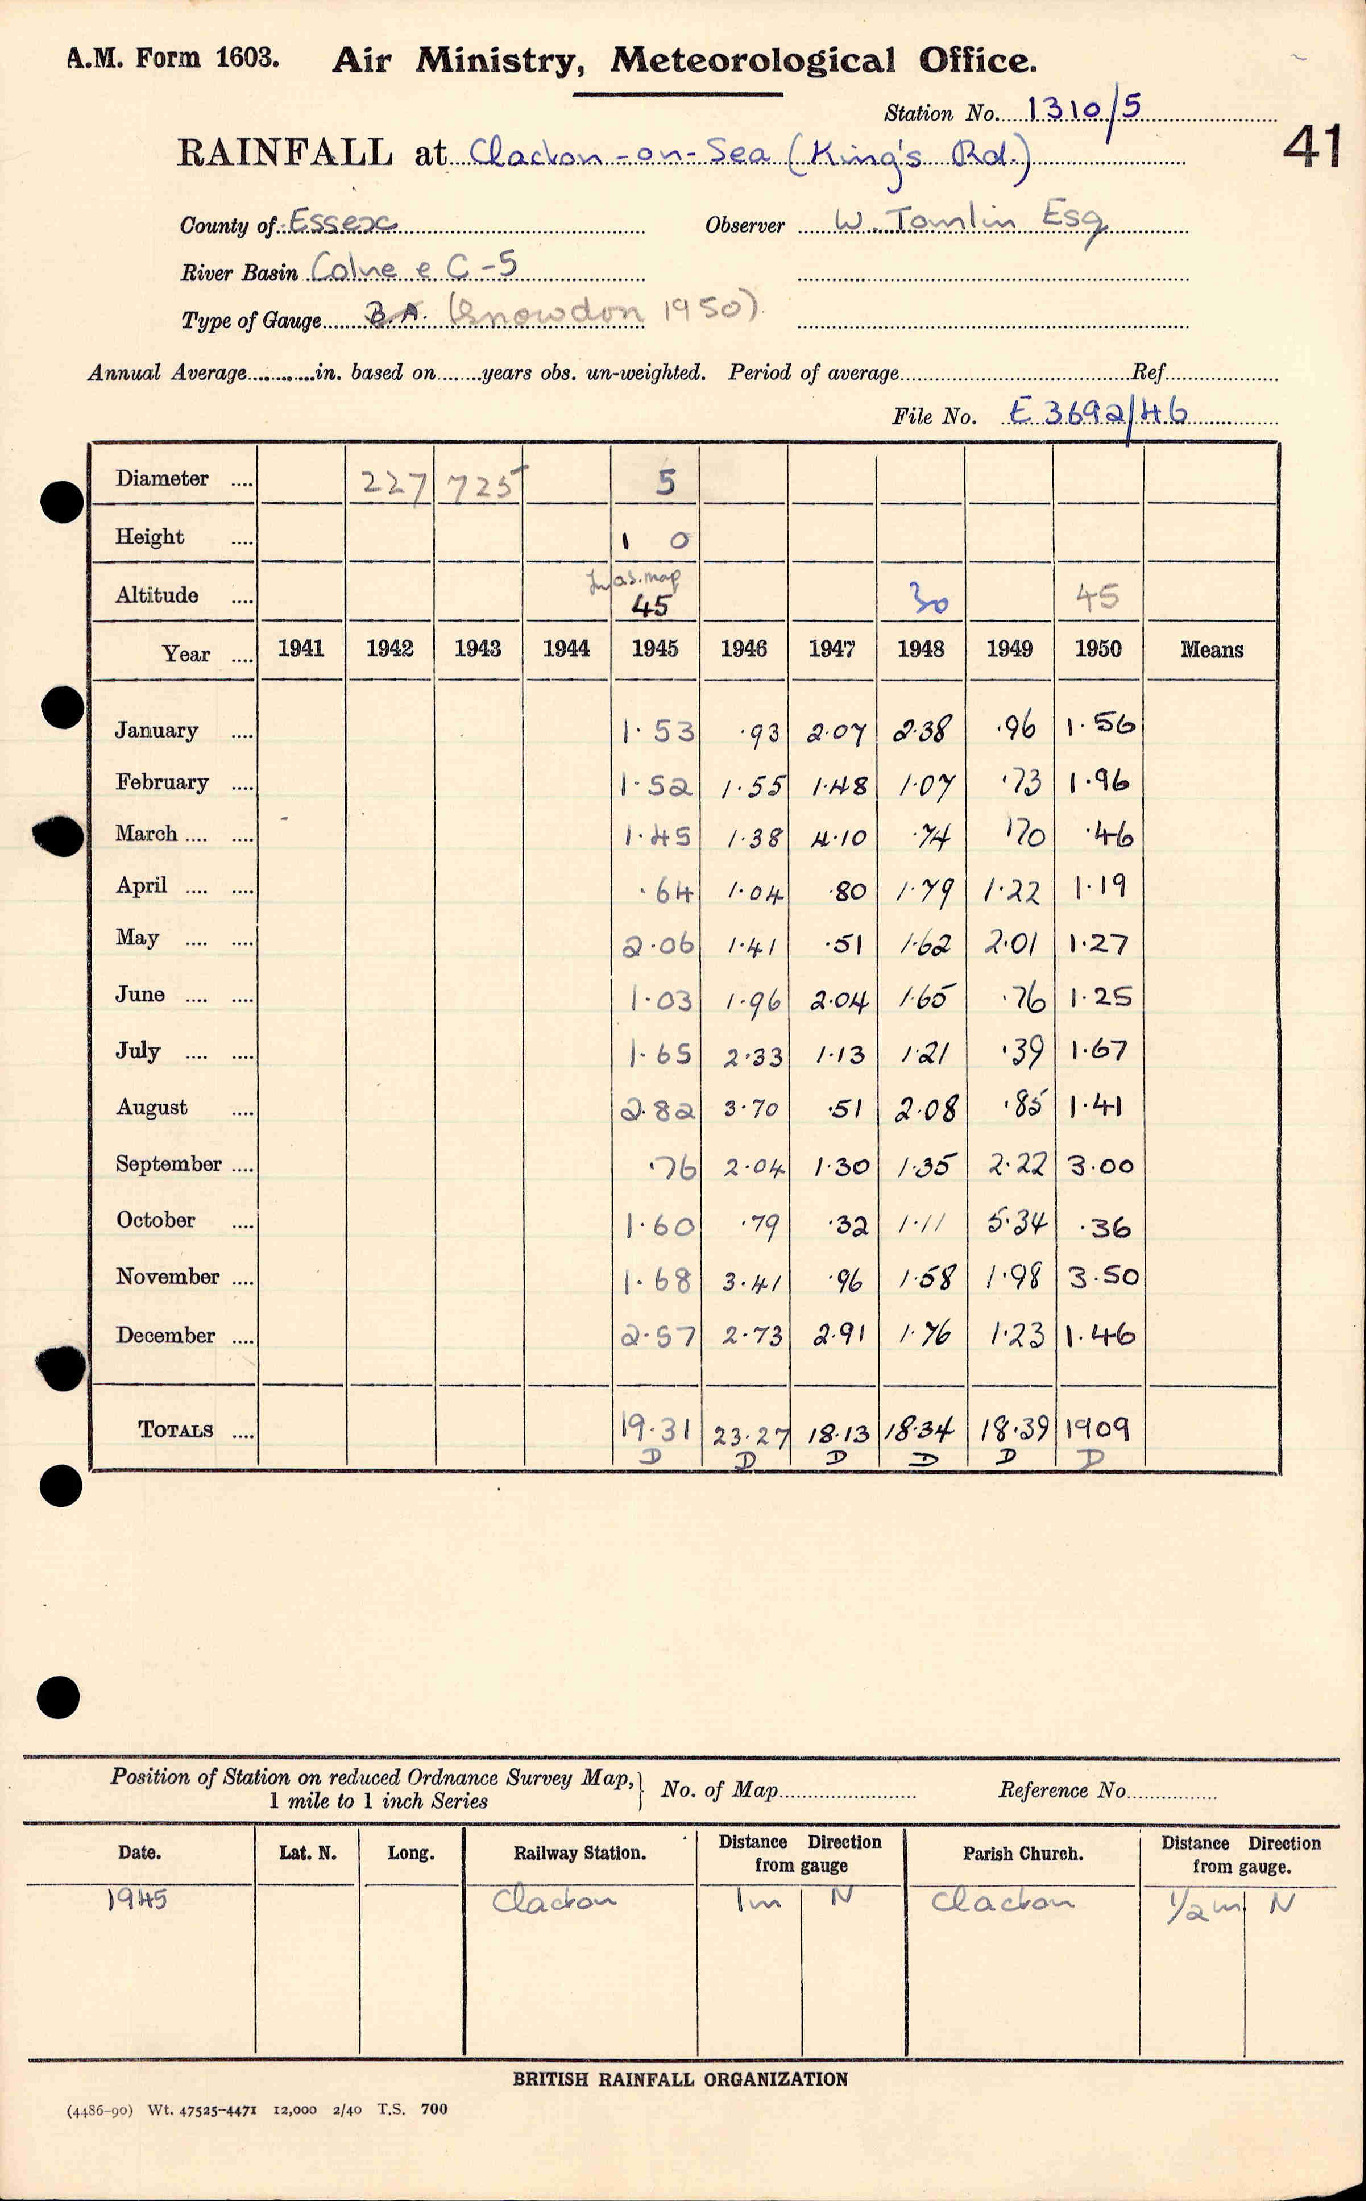 A.M. Form 1603. Air Ministry, Meteorological Office.
Station No. 1310/5
41
RAINFALL at Clacton-on-Sea (King's Rd.)
County of Essex Observer W. Tomlin Esq
River Basin Colne e C-5
Type of Gauge B.A. (Snowdon 1950)
Annual Average............in. based on.......years obs. un-weighted. Period of average Ref.
File No. E 3692/46
Diameter .... 227 725 5
Height .... 1 0
map
Altitude .... 45 30 45
Year .... 1941 1942 1943 1944 1945 1946 1947 1948 1949 1950 Means
January .... 1.53 .93 2.07 2.38 .96 1.56
February .... 1.52 1.55 1.48 1.07 .73 1.96
March .... .... 1.45 1.38 4.10 .74 .70 .46
April .... .... .64 1.04 .80 1.79 1.22 1.19
May .... .... 2.06 1.41 .51 1.62 2.01 1.27
June .... .... 1.03 1.96 2.04 1.65 .76 1.25
July .... .... 1.65 2.33 1.13 1.21 .39 1.67
August .... 2.82 3.70 .51 2.08 .85 1.41
September .... .76 2.04 1.30 1.35 2.22 3.00
October .... 1.60 .79 .32 1.11 5.34 .36
November .... 1.68 3.41 .96 1.58 1.98 3.50
December .... 2.57 2.73 2.91 1.76 1.23 1.46
TOTALS .... 19.31 23.27 18.13 18.34 18.39 1909
D D D D D D
Position of Station on reduced Ordnance Survey Map, } No. of Map Reference No.
1 mile to 1 inch Series
Date. Lat. N. Long. Railway Station. Distance Direction from gauge Parish Church. Distance Direction from gauge.
1945 Clacton 1m N Clacton 1/2m N
BRITISH RAINFALL ORGANIZATION
(4486-90) Wt. 47525-4471 12,000 2/40 T.S. 700